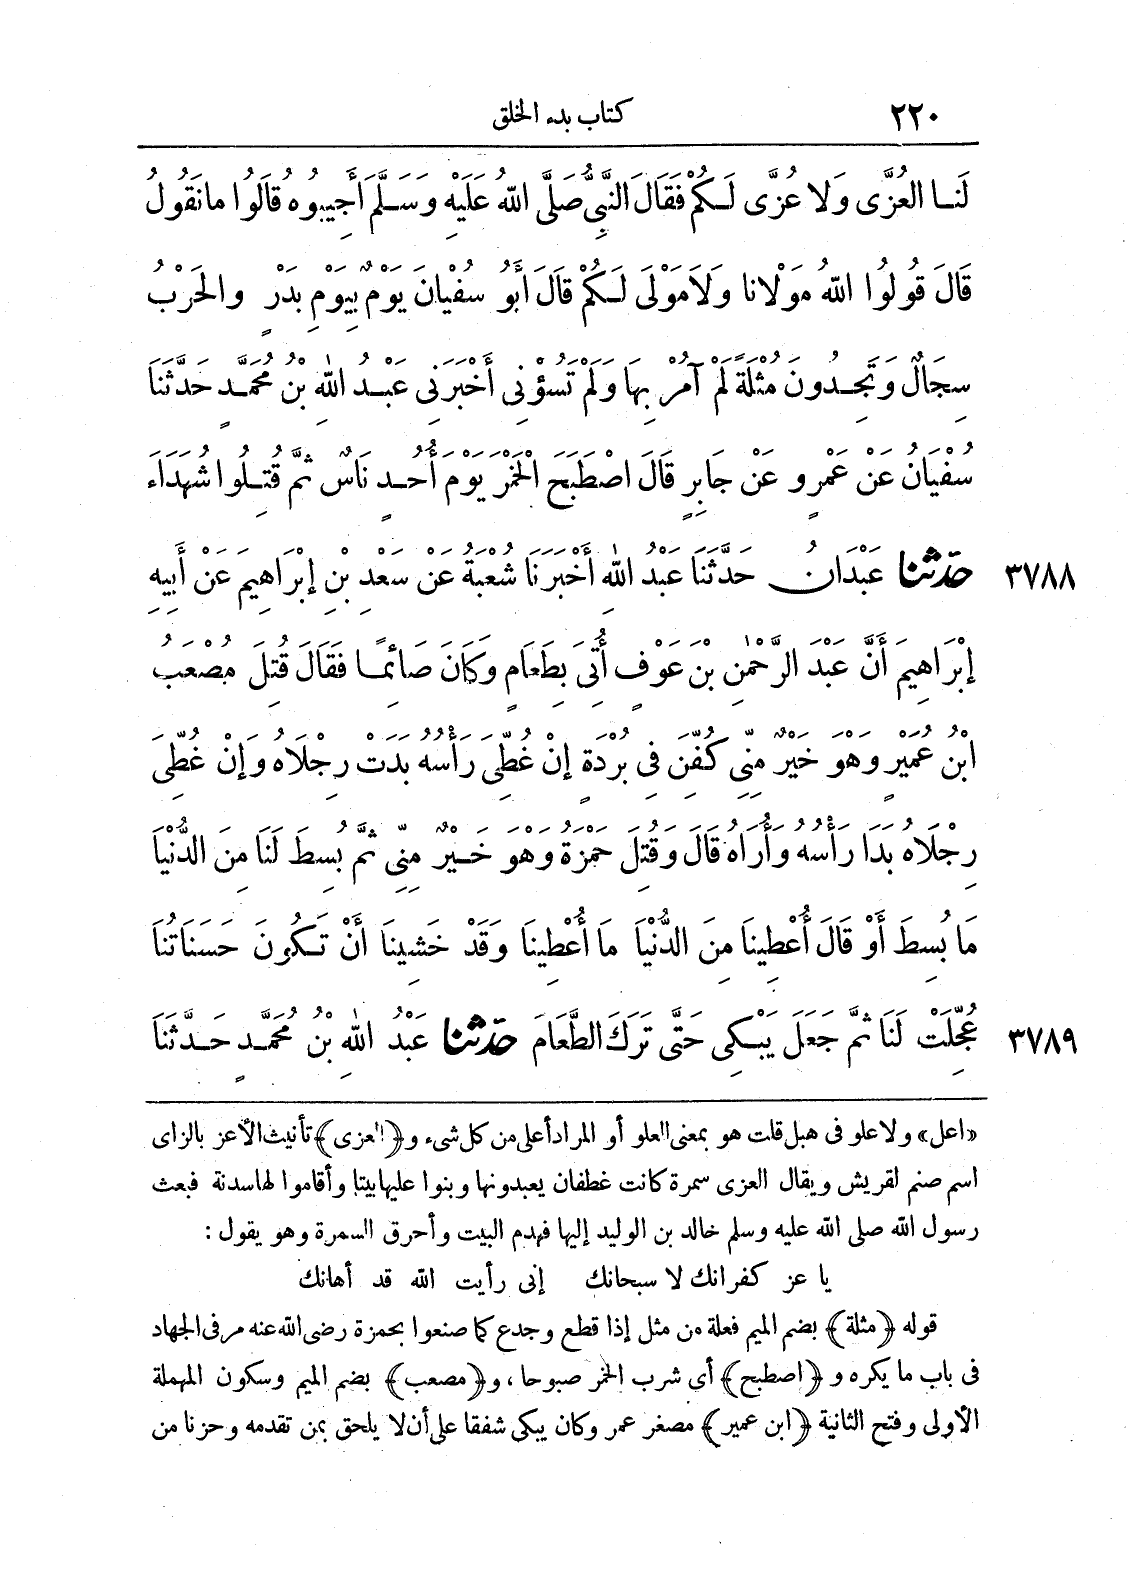 ٢٢٠ كتاب بدء الخلق
لَنَا الْعُزَّى وَلَا عُزَّى لَكُمْ فَقَالَ النَّبِيُّ صَلَّى اللهُ عَلَيْهِ وَسَلَّمَ أَجِيبُوهُ قَالُوا مَا نَقُولُ
قَالَ قُولُوا اللهُ مَوْلَانَا وَلَا مَوْلَى لَكُمْ قَالَ أَبُو سُفْيَانَ يَوْمٌ بِيَوْمِ بَدْرٍ وَالْحَرْبُ
سِجَالٌ وَتَجِدُونَ مُثْلَةً لَمْ آمُرْ بِهَا وَلَمْ تَسُؤْنِي أَخْبَرَنِي عَبْدُ اللهِ بْنُ مُحَمَّدٍ حَدَّثَنَا
سُفْيَانُ عَنْ عَمْرٍو عَنْ جَابِرٍ قَالَ اصْطَبَحَ الْخَمْرَ يَوْمَ أُحُدٍ نَاسٌ ثُمَّ قُتِلُوا شُهَدَاءَ
٣٧٨٨ حدثنا عَبْدَانُ حَدَّثَنَا عَبْدُ اللهِ أَخْبَرَنَا شُعْبَةُ عَنْ سَعْدِ بْنِ إِبْرَاهِيمَ عَنْ أَبِيهِ
إِبْرَاهِيمَ أَنَّ عَبْدَ الرَّحْمٰنِ بْنَ عَوْفٍ أُتِيَ بِطَعَامٍ وَكَانَ صَائِمًا فَقَالَ قُتِلَ مُصْعَبُ
ابْنُ عُمَيْرٍ وَهُوَ خَيْرٌ مِنِّي كُفِّنَ فِي بُرْدَةٍ إِنْ غُطِّيَ رَأْسُهُ بَدَتْ رِجْلَاهُ وَإِنْ غُطِّيَ
رِجْلَاهُ بَدَا رَأْسُهُ وَأُرَاهُ قَالَ وَقُتِلَ حَمْزَةُ وَهُوَ خَيْرٌ مِنِّي ثُمَّ بُسِطَ لَنَا مِنَ الدُّنْيَا
مَا بُسِطَ أَوْ قَالَ أُعْطِينَا مِنَ الدُّنْيَا مَا أُعْطِينَا وَقَدْ خَشِينَا أَنْ تَكُونَ حَسَنَاتُنَا
٣٧٨٩ عُجِّلَتْ لَنَا ثُمَّ جَعَلَ يَبْكِي حَتَّى تَرَكَ الطَّعَامَ حدثنا عَبْدُ اللهِ بْنُ مُحَمَّدٍ حَدَّثَنَا
«اعل» ولا علو فى هبل قلت هو بمعنى العلو أو المراد أعلى من كل شىء و﴿العزى﴾ تأنيث الأعز بالزاى
اسم صنم لقريش ويقال العزى سمرة كانت غطفان يعبدونها وبنوا عليها بيتا وأقاموا لها سدنة فبعث
رسول الله صلى الله عليه وسلم خالد بن الوليد إليها فهدم البيت وأحرق السمرة وهو يقول :
يا عز كفرانك لا سبحانك إنى رأيت الله قد أهانك
قوله ﴿مثلة﴾ بضم الميم فعلة من مثل إذا قطع وجدع كما صنعوا بحمزة رضى الله عنه مر فى الجهاد
فى باب ما يكره و ﴿اصطبح﴾ أى شرب الخمر صبوحا ، و﴿مصعب﴾ بضم الميم وسكون المهملة
الأولى وفتح الثانية ﴿ابن عمير﴾ مصغر عمر وكان يبكى شفقا على أن لا يلحق بمن تقدمه وحزنا من